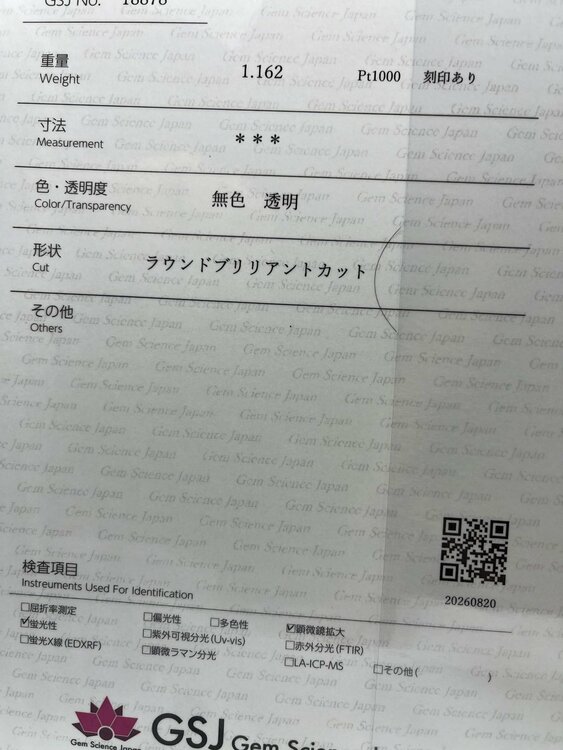 GSJ No. 18878
重量 1.162 Pt1000 刻印あり
Weight
寸法 ***
Measurement
色・透明度 無色 透明
Color/Transparency
形状 ラウンドブリリアントカット
Cut
その他
Others
20260820
検査項目
Instruments Used For Identification
□屈折率測定 □偏光性 □多色性 ☑顕微鏡拡大
☑蛍光性 □紫外可視分光(Uv-vis) □赤外分光(FTIR)
□蛍光X線(EDXRF) □顕微ラマン分光 □LA-ICP-MS □その他( )
GSJ Gem Scien
Gem Science Japan